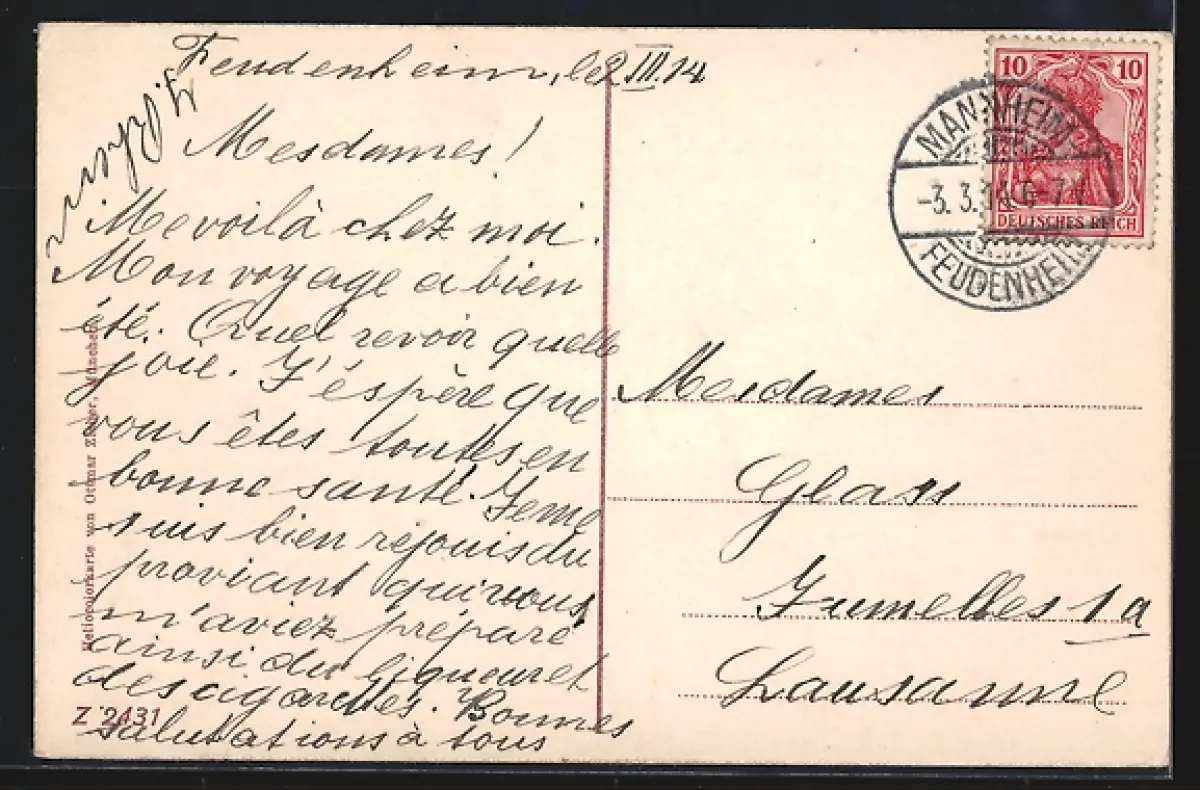 Feudenheim, le 2 III. 14
Mesdames!
Me voilà chez moi.
Mon voyage a bien
été. Quel revoir quelle
joie. J'éspère que
vous êtes toutes en
bonne santé. Je me
suis bien rejouis du
proviant qui vous
m'aviez préparé
ainsi du liqueur et
des cigarettes. Bonnes
salutations à tous
Heliocolorkarte von Ottmar Zieher, München.
Z 2431
10 10
DEUTSCHES REICH
MANNHEIM-
-3. 3. 14. 6-7 V.
FEUDENHEIM
Mesdames
Glass
Jumelles 1a
Lausanne